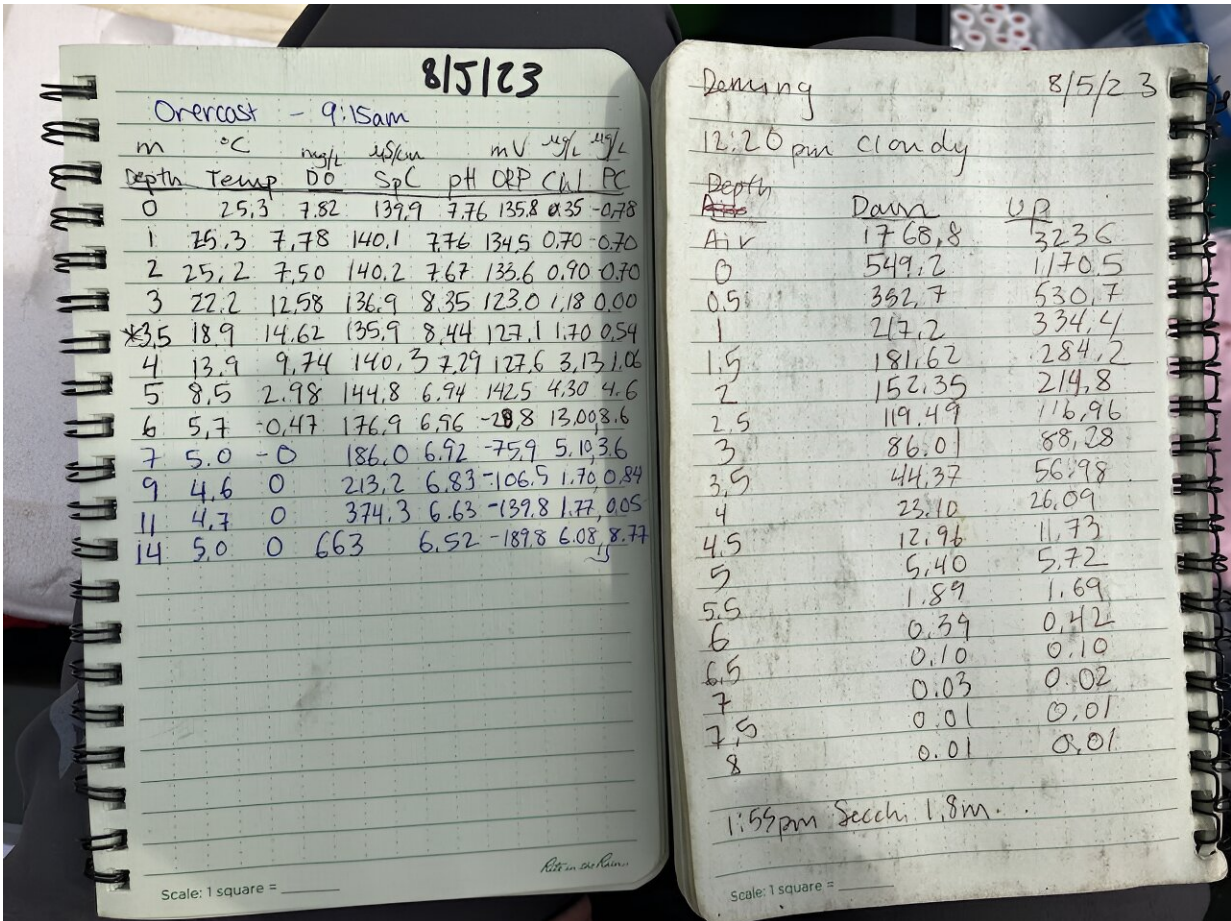 8/5/23
Overcast - 9:15am
m °C mg/L µS/cm mV µg/L µg/L
Depth Temp DO SpC pH ORP Chl PC
0 25.3 7.82 139.9 7.76 135.8 0.35 -0.78
1 25.3 7.78 140.1 7.76 134.5 0.70 -0.70
2 25.2 7.50 140.2 7.67 133.6 0.90 -0.70
3 22.2 12.58 136.9 8.35 123.0 1.18 0.00
*3.5 18.9 14.62 135.9 8.44 127.1 1.70 0.54
4 13.9 9.74 140.3 7.29 127.6 3.13 1.06
5 8.5 2.98 144.8 6.94 142.5 4.30 4.6
6 5.7 -0.47 176.9 6.96 -28.8 13.00, 8.6
7 5.0 -0 186.0 6.92 -75.9 5.10, 3.6
9 4.6 0 213.2 6.83 -106.5 1.70, 0.84
11 4.7 0 374.3 6.63 -139.8 1.77, 0.05
14 5.0 0 663 6.52 -189.8 6.08, 8.77
Rite in the Rain
Scale: 1 square = ______
Deming 8/5/23
12:20 pm cloudy
Depth
Down UP
Air 1768.8 3236
0 549.2 1170.5
0.5 352.7 530.7
1 217.2 334.4
1.5 181.62 284.2
2 152.35 214.8
2.5 119.49 116.96
3 86.01 88.28
3.5 44.37 56.98
4 23.10 26.09
4.5 12.96 11.73
5 5.40 5.72
5.5 1.89 1.69
6 0.39 0.42
6.5 0.10 0.10
7 0.03 0.02
7.5 0.01 0.01
8 0.01 0.01
1:55pm Secchi 1.8m.
Scale: 1 square = ______